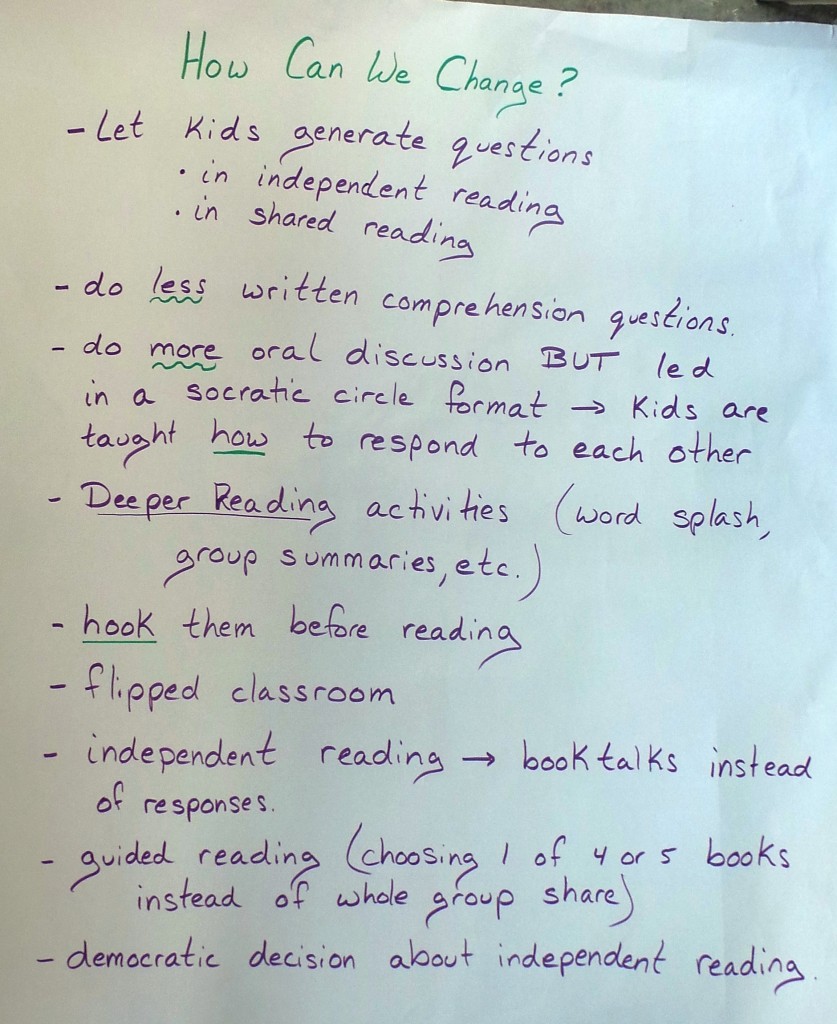 How Can We Change?
- Let Kids generate questions
• in independent reading
• in shared reading
- do less written comprehension questions.
- do more oral discussion BUT led
in a socratic circle format → Kids are
taught how to respond to each other
- Deeper Reading activities (word splash,
group summaries, etc.)
- hook them before reading
- flipped classroom
- independent reading → book talks instead
of responses.
- guided reading (choosing 1 of 4 or 5 books
instead of whole group share)
- democratic decision about independent reading.